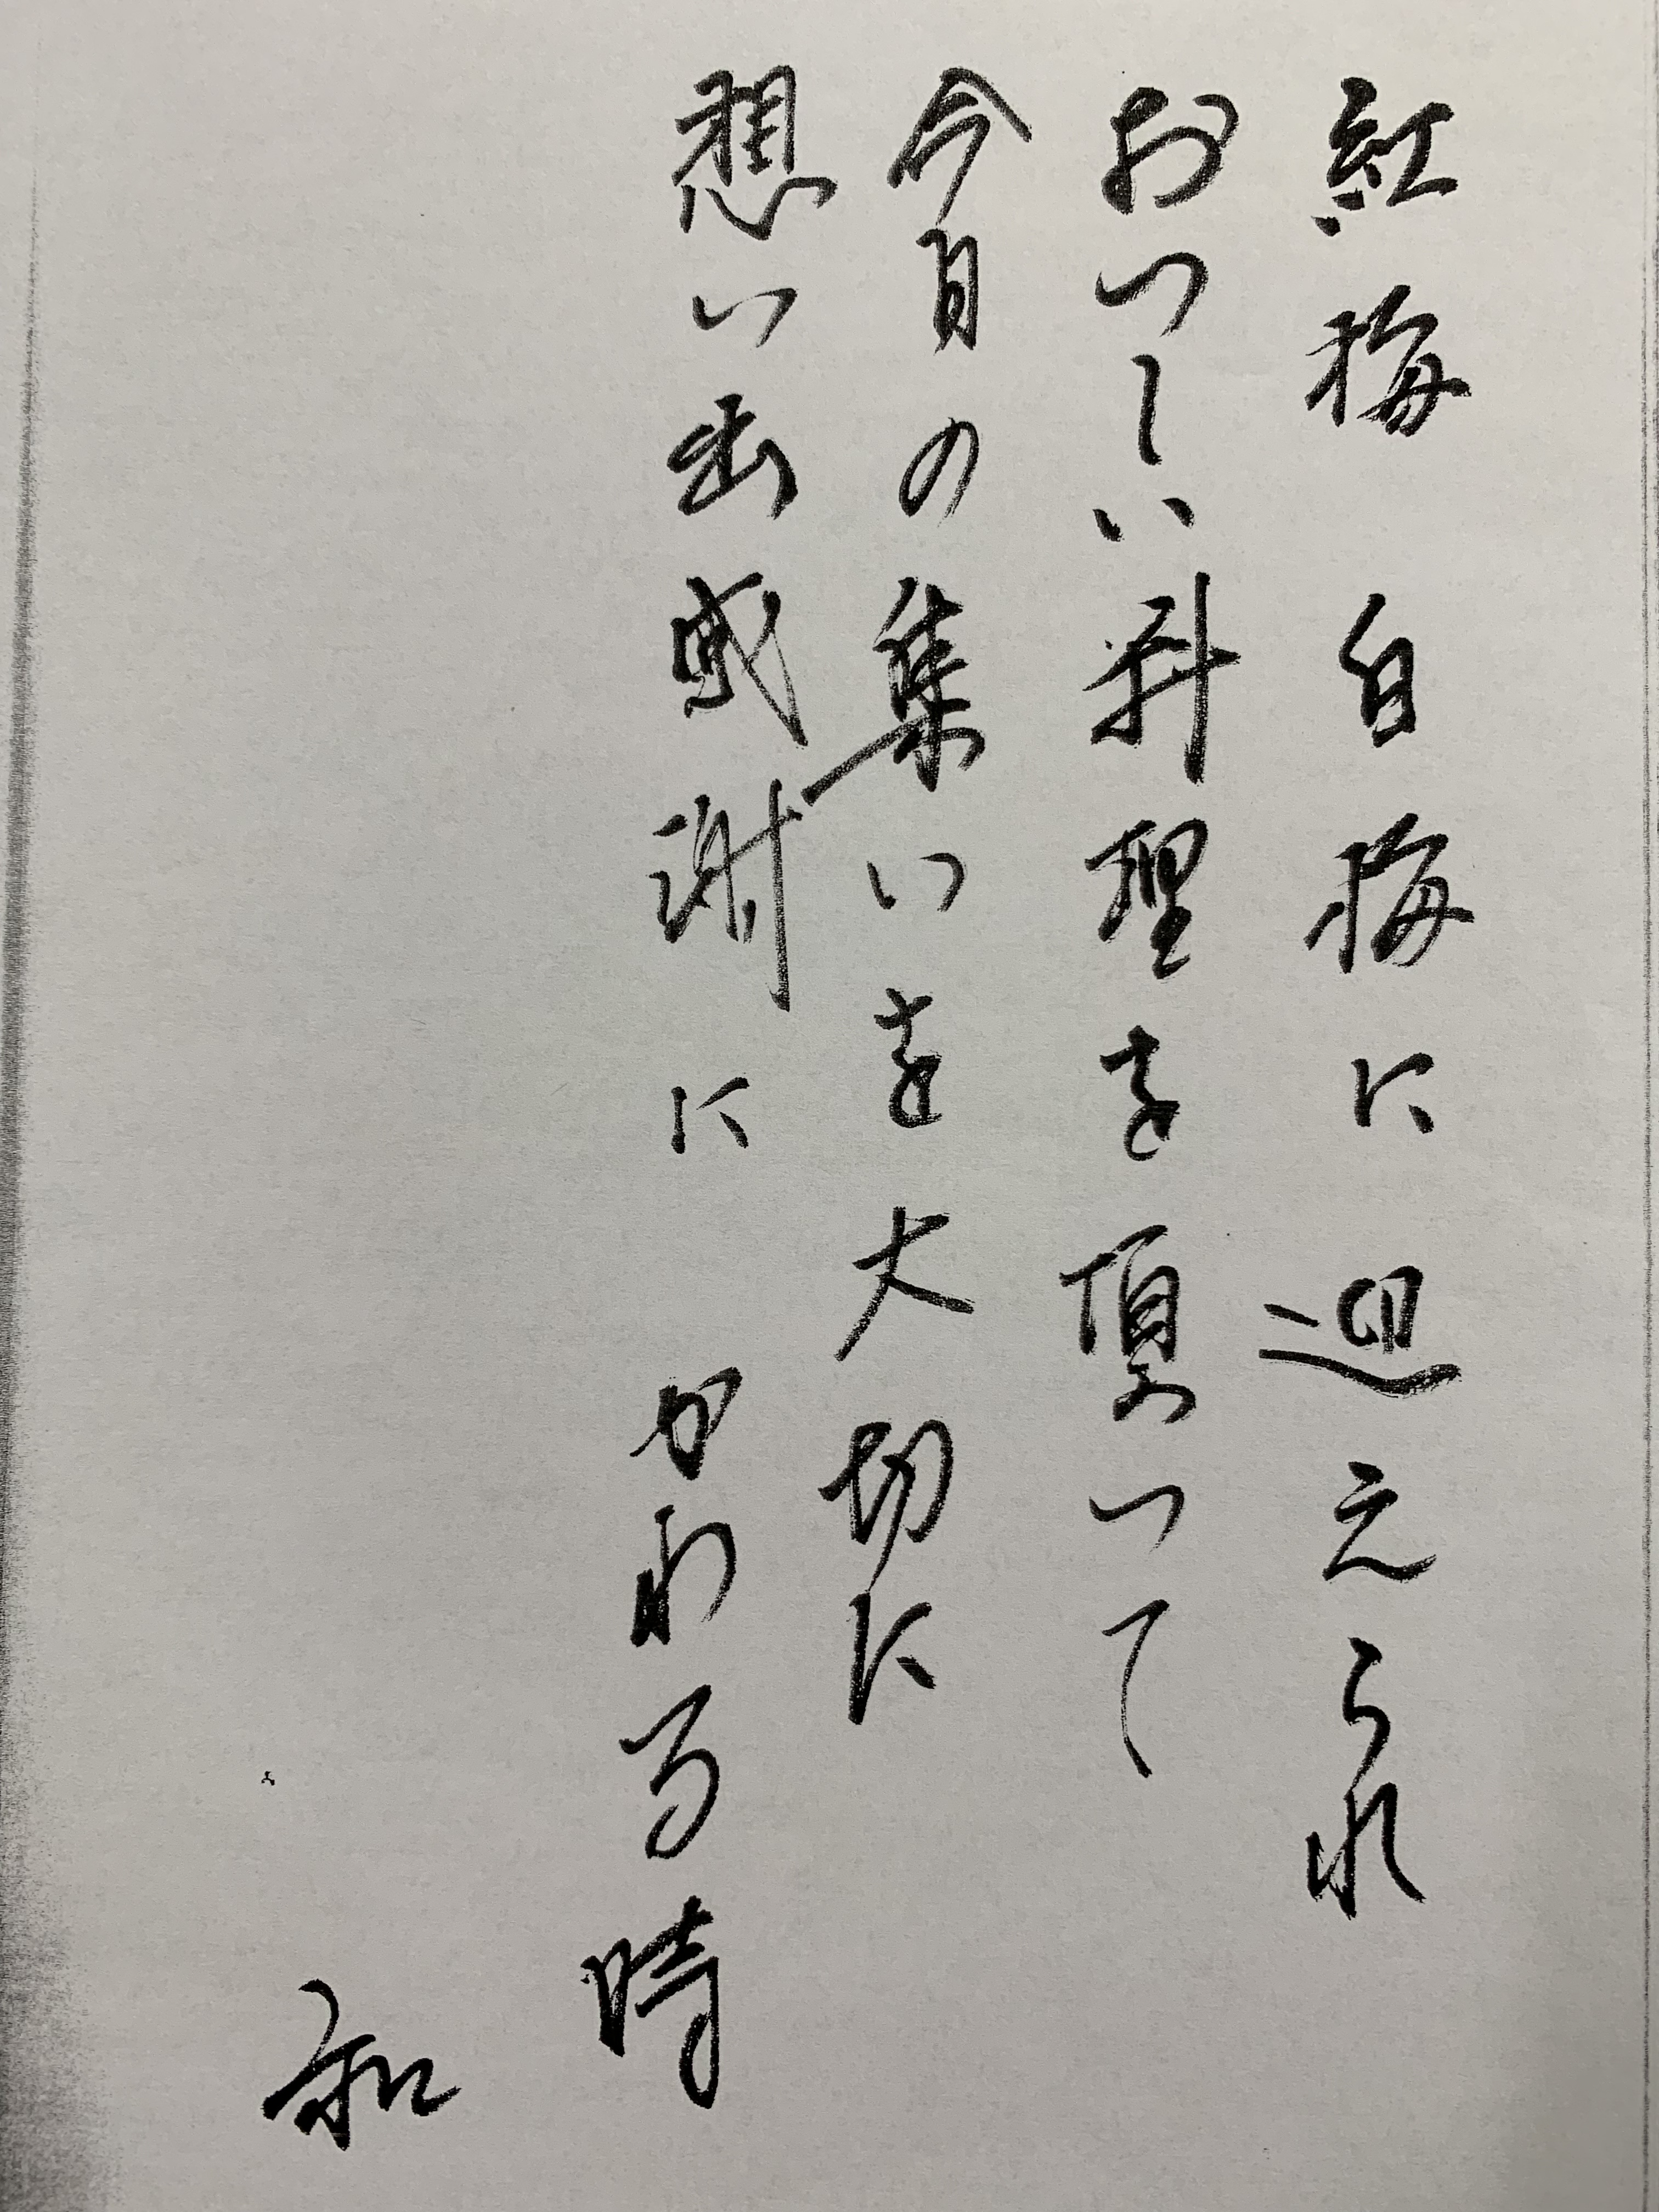 紅梅 白梅に 迎えられ
おいしい料理を頂いて
今日の集いを大切に
想い出感謝に かわる時
和